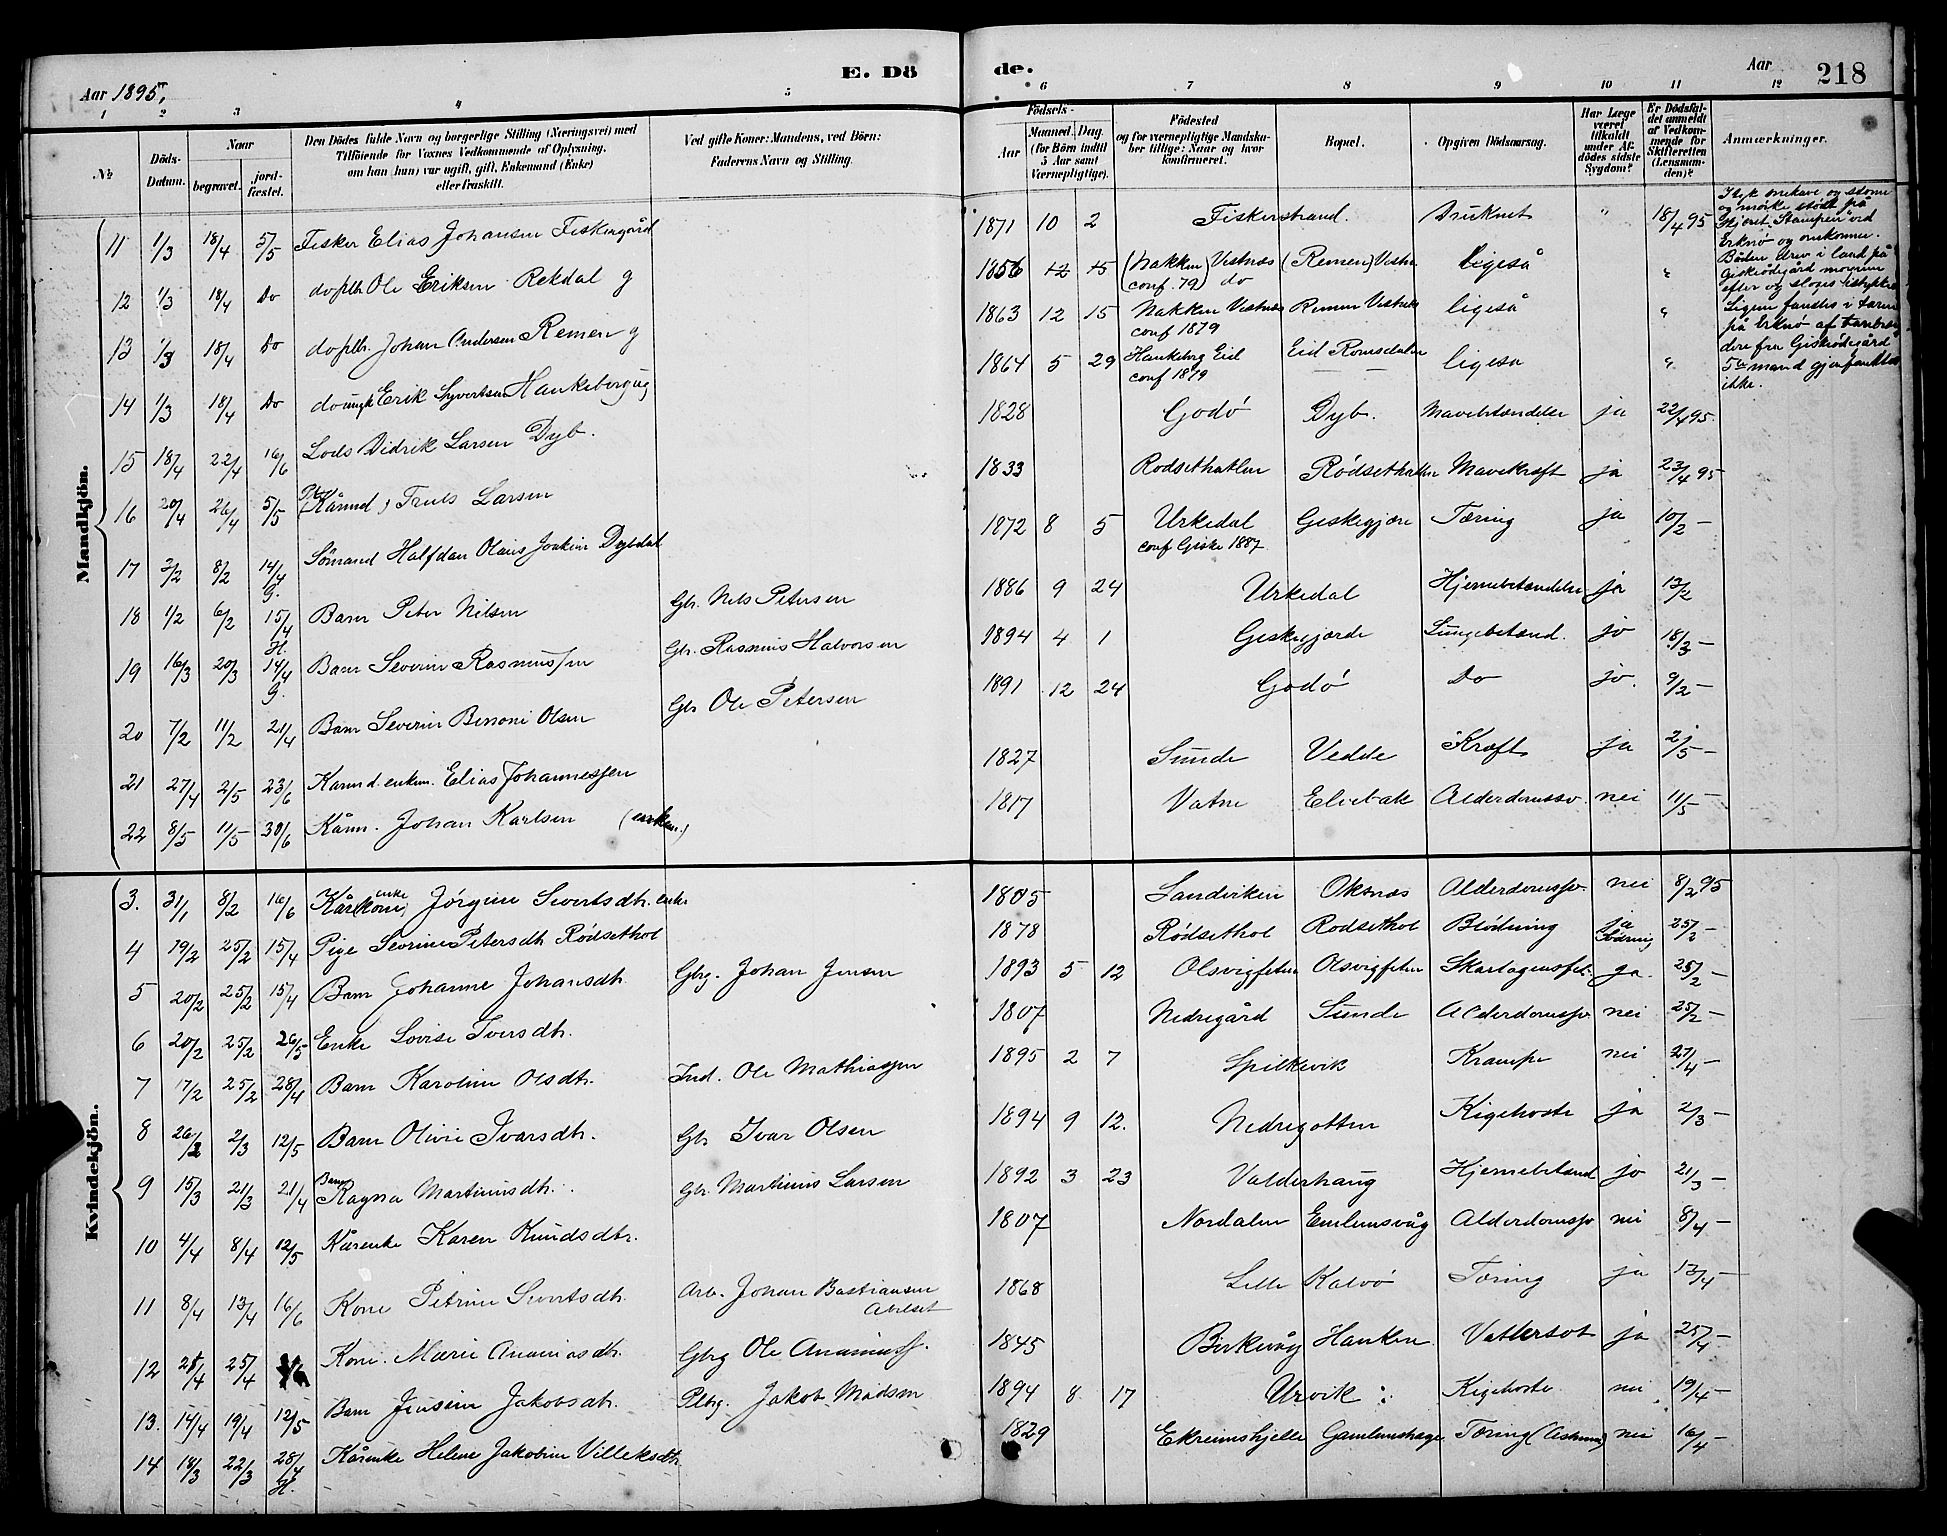 Aar 1895, E. Dö de. Aar 218
1 2 3 4 5 6 7 8 9 10 11 12
№ Döds-Datum. Naar begravet. jordfæstet. Den Dödes fulde Navn og borgerlige Stilling (Næringsvei) med Tilföiende for Voxnes Vedkommende af Oplysning, om han (hun) var ugift, gift, Enkemand (Enke) eller fraskilt. Ved gifte Koner: Mandens, ved Börn: Faderens Navn og Stilling. Födsels- Aar Maaned. Dag. (for Börn indtil 5 Aar samt Værnepligtige). Födested og for værnepligtige Mandskaber tillige: Naar og hvor konfirmeret. Bopæl. Opgiven Dödsaarsag. Har Læge været tilkaldt under Afdödes sidste Sygdom? Er Dödsfaldet anmeldt af Vedkommende for Skifteretten (Lensmanden)? Anmærkninger.
Mandkjön.
11 1/3 18/4 5/5 Fisker Elias Johansen Fiskergård 1871 10 2 Fiskerstrand. Druknet " 18/4 95
12 1/3 18/4 Do do plb. Ole Eriksen Rekdal g 1856 12 15 (Nakken) Vestnæs conf. 79) do (Remen) Vestn. ligeså "
13 1/3 18/4 Do do plb. Johan Andersen Remen g 1863 12 15 Nakken Vestnæs conf 1879 Remen Vestnæs ligeså "
14 1/3 18/4 Do do ungk Erik Syvertsen Hankeborg ug 1864 5 29 Hankeborg Eid conf 1879 Eid Romsdalen ligeså "
og mørke stødt på
Stampen ved
Erknø og omkomne.
Båden drev i land på
Giskeødegård
efter og
Ligene fandtes i
på Erknø af
fra Giskeødegård
5te mand
ikke.
15 18/4 22/4 16/6 Lods Didrik Larsen Dyb. 1828 Godø Dyb. Mavebetændelse ja 22/4 95.
16 20/4 26/4 5/5 Kårmd, Truls Larsen 1833 Rodsetholen Rödsetholen Mavekræft ja 23/4 95
17 2/2 8/2 14/4 G. Sömand Halfdan Olaus Joakim Dybdal 1872 8 5 Urkedal conf Giske 1887 Giskegjære Tæring ja 10/2 —
18 1/2 6/2 15/4 H. Barn Peter Nilsen Gbr. Nels Petersen 1886 9 24 Urkedal Hjernebetændelse ja 13/2
19 16/3 20/3 14/4 G. Barn Severin Rasmussen Gbr. Rasmus Halvorsen 1894 4 1 Giskegjærde Lungebetænd. ja 18/3 —
20 7/2 11/2 21/4 Barn Severin Benoni Olsen Gbr Ole Petersen 1891 12 24 Godø Do ja. 9/2 —
21 27/4 2/5 23/6 Kaarmd. enkem. Elias Johannessen 1827 Sunde Vedde Kræft ja 2/5 —
22 8/5 11/5 30/6 Kårm. Johan Karlsen (enkem.) 1817 Vatne Elvebak Alderdomssv. nei 11/5 —
Kvindekjön.
3. 31/1 8/2 16/6 Kårkone, enke Jörgine Sivertsdtr. enke 1805 Sandviken Oksnæs Alderdomssv. nei 8/2 95
4 19/2 25/2 15/4 Pige Sevrine Petersdtr Rödsethol 1878 Rödsethol Rodsethol Blödning ja 25/2 —
5 20/2 25/2 15/4 Barn Johanne Johansdtr. Gbrg. Johan Jensen 1893 5 12 Olsvigfeten Olsvigfeten Skarlagensfeb. ja. 25/2 —
6 20/2 25/2 26/5 Enke Lovise Iversdtr. 1807 Nedregård Sunde Alderdomssv nei 25/2 —
7 17/2 25/2 28/4 Barn Karoline Olsdtr. Ind. Ole Mathiassen 1895 2 7 Spilkevik Krampe nei 27/4 —
8 26/2 2/3 12/5 Barn Olivie Ivarsdtr. Gbr Ivar Olsen 1894 9 12. Nedregotten Kigehoste ja 2/3 —
9 15/3 21/3 21/4 Barn Ragna Martinusdtr. Gbr. Martinus Larsen 1892 3 23 Valderhaug Hjernebetænd ja 21/3 —
10 4/4 8/4 12/5 Kårenke Karen Knudsdtr. 1807 Nordalen Emlemsvåg Alderdomssv nei 8/4 —
11 8/4 13/4 16/6 Kone Petrine Sivertsdtr. Arb. Johan Bastiansen 1868 Lille Kalvø Tæring ja 13/4 —
12 21/4 25/4 Kone. Marie Ananiasdtr. Gbrg Ole Ananiass. 1845 Birkevåg Hanken Vattersot ja 25/4 —
13. 14/4 19/4 12/5 Barn Jensine Jakobsdtr. Plbrg. Jakob Madsen 1894 8 17 Urvik Kigehoste nei 19/4 —
14 18/3 22/3 28/4 H. Kårenke Helene Jakobine Villeksdtr. 1829 Ekreimshjelle Gamlemshage Tæring (Asthma) nei 16/4 —